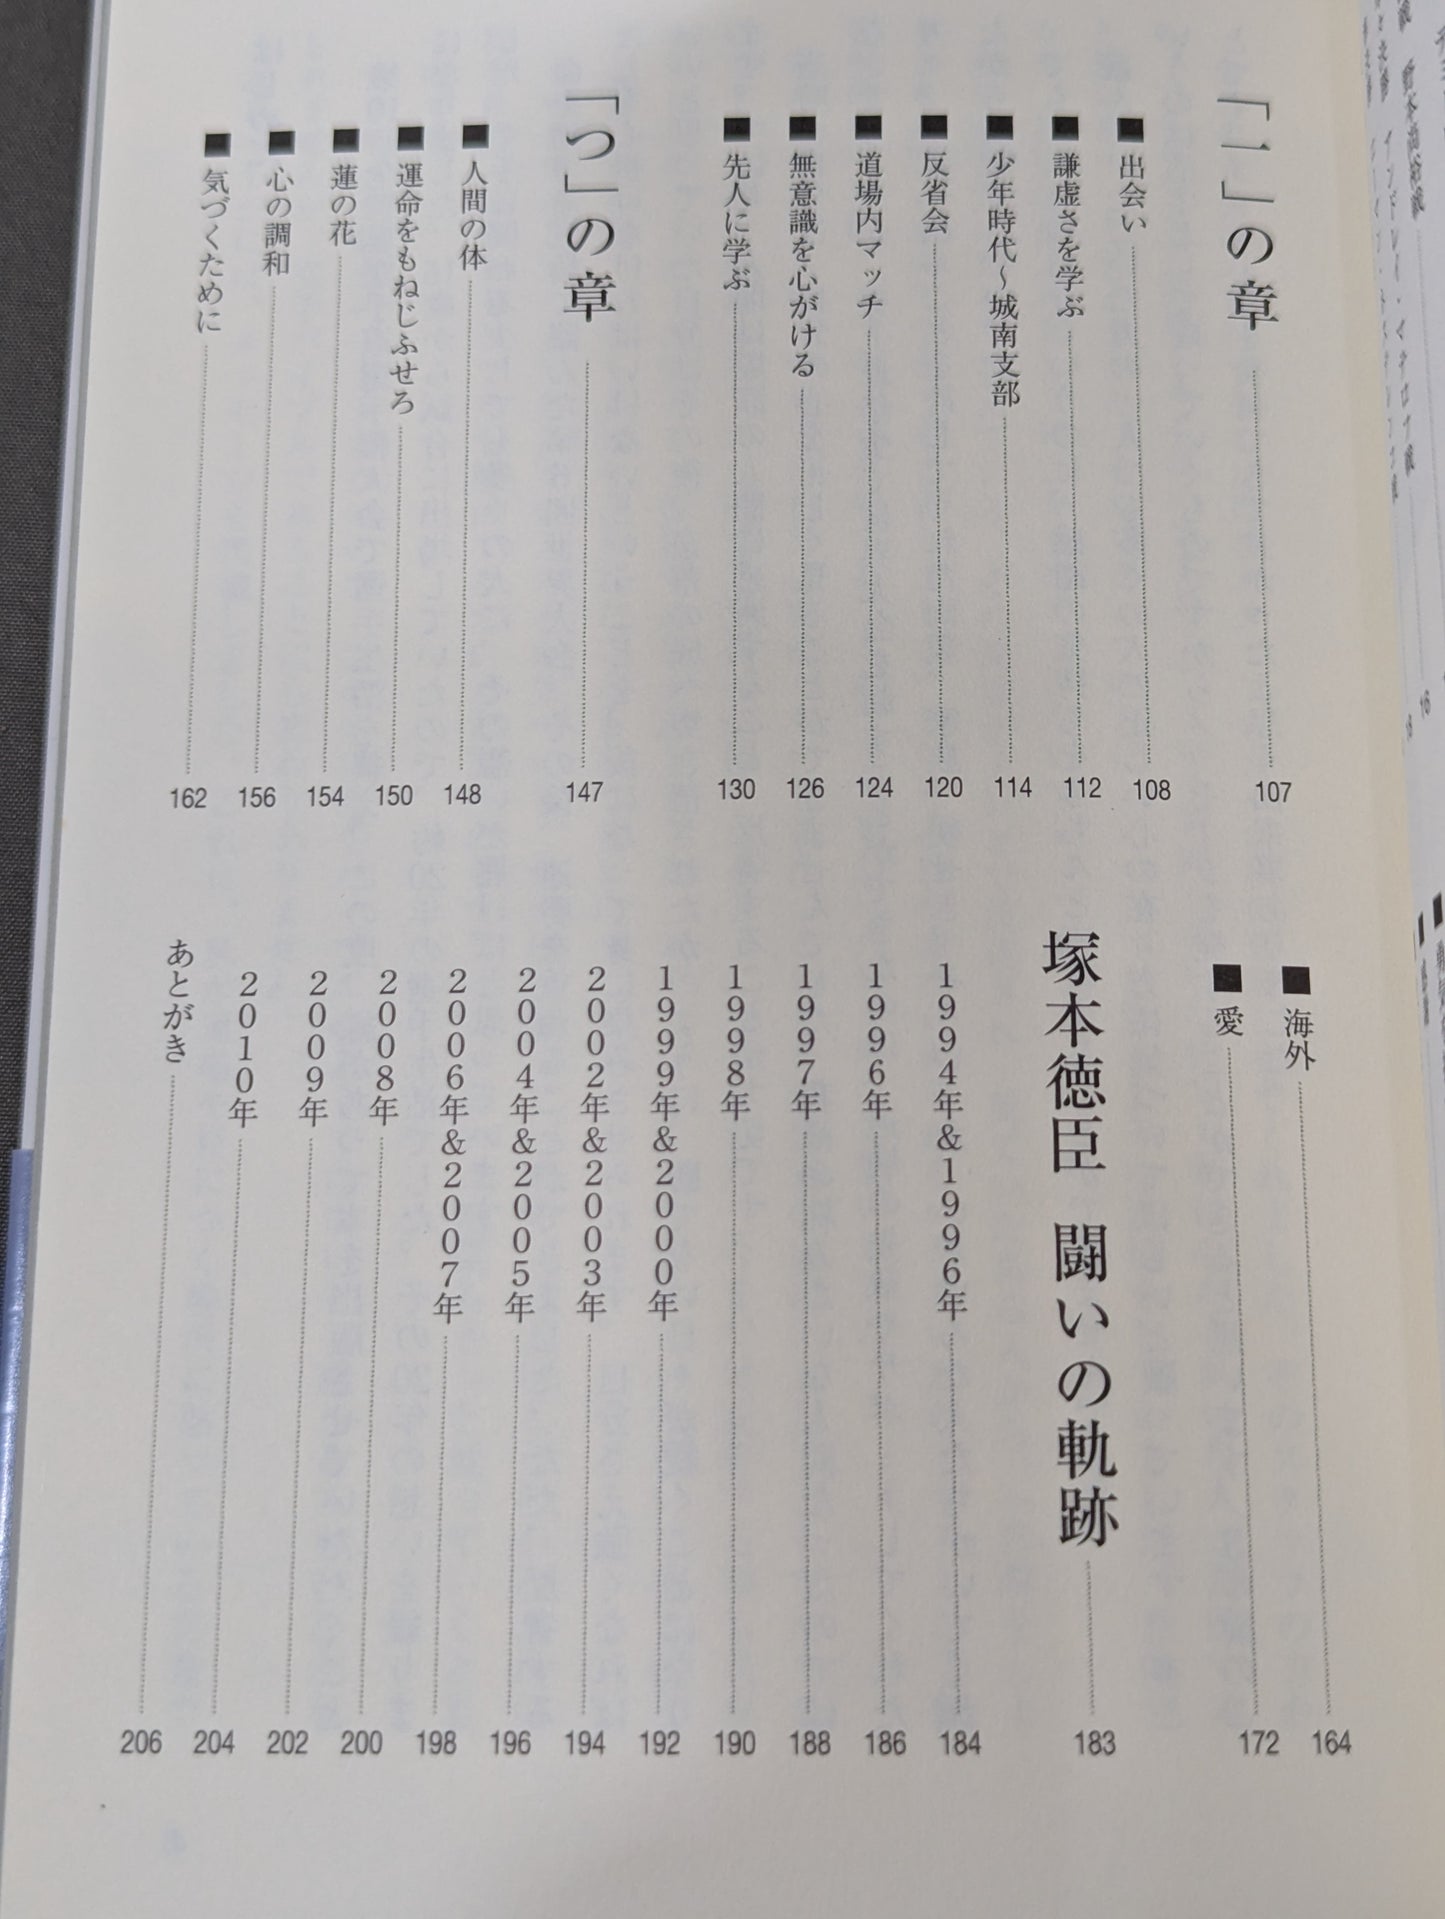 「一」の章 107
■出会い 108
■謙虚さを学ぶ 112
■少年時代〜城南支部 114
■反省会 120
■道場内マッチ 124
■無意識を心がける 126
■先人に学ぶ 130
「つ」の章 147
■人間の体 148
■運命をもねじふせろ 150
■蓮の花 154
■心の調和 156
■気づくために 162
■海外 164
■愛 172
塚本徳臣 闘いの軌跡 183
1994年&1996年 184
1996年 186
1997年 188
1998年 190
1999年&2000年 192
2002年&2003年 194
2004年&2005年 196
2006年&2007年 198
2008年 200
2009年 202
2010年 204
あとがき 206